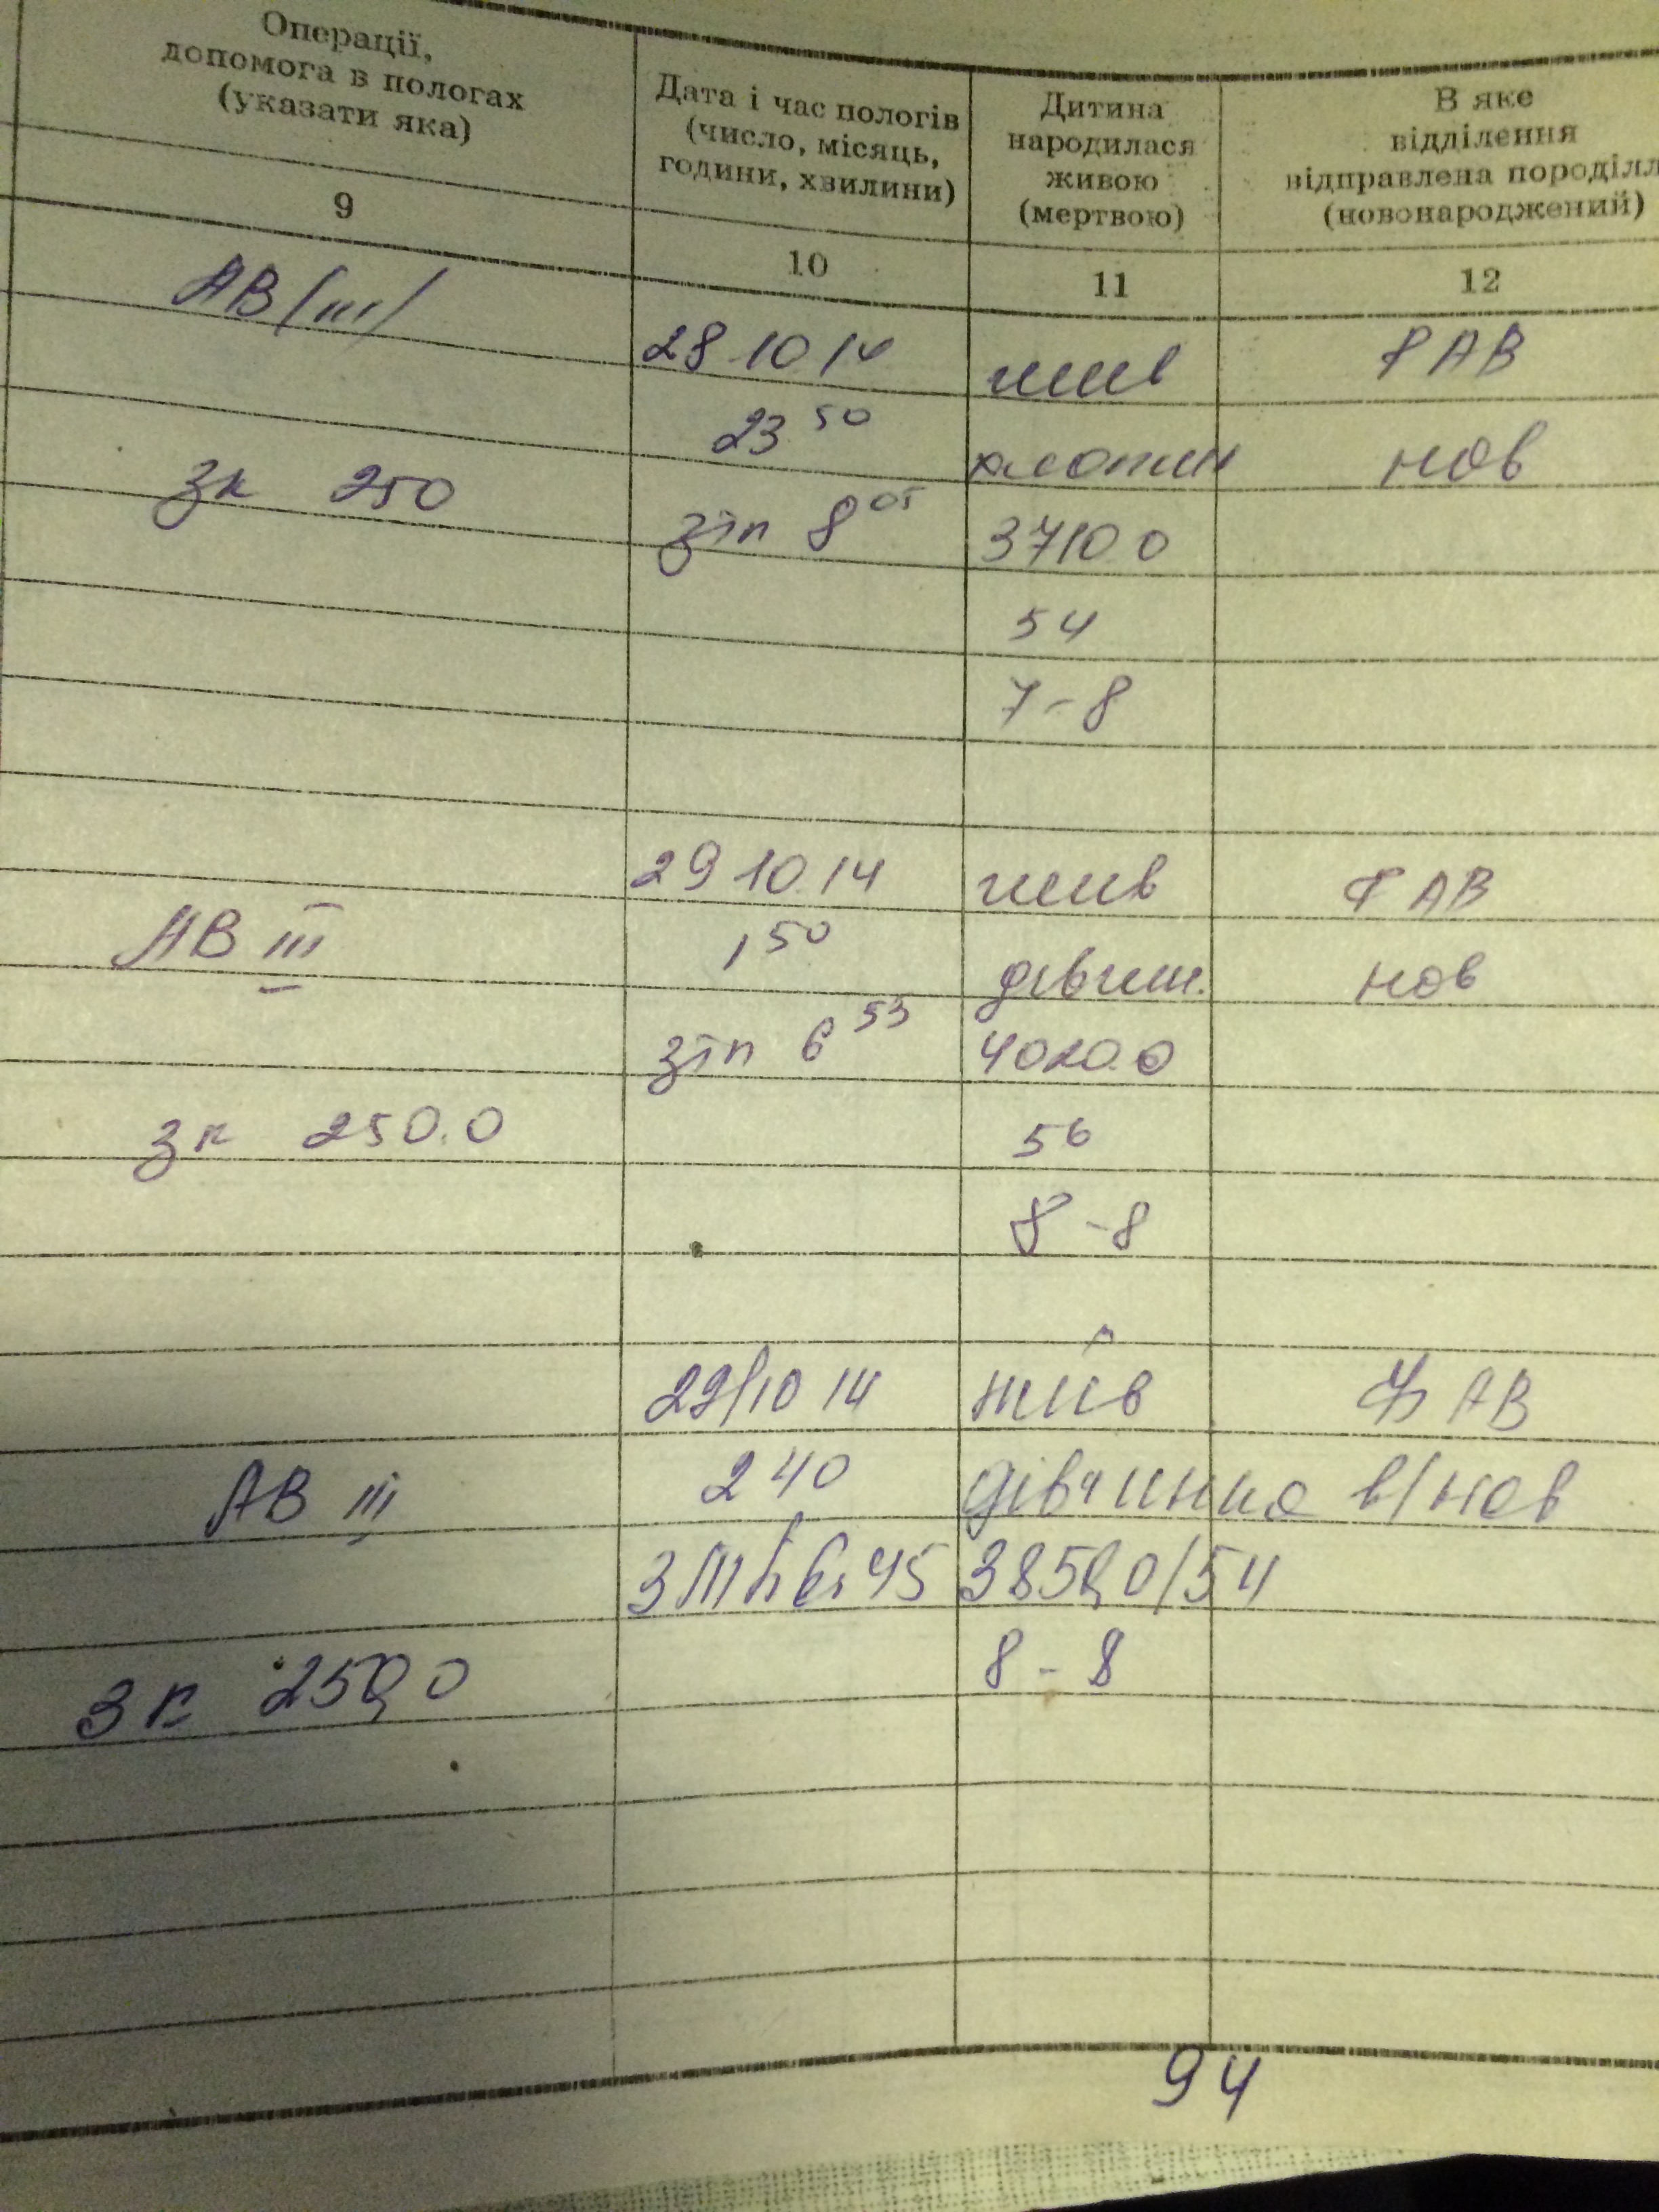 Операції,
допомога в пологах
(указати яка)
Дата і час пологів
(число, місяць,
години, хвилини)
Дитина
народилася
живою
(мертвою)
В яке
відділення
відправлена породілл
(новонароджений)
9 10 11 12
АВ (III) 28 10 14 жив ФАВ
23 50 хлопчи нов
зк 250 зтп 8 05 3710 0
54
7-8
29 10.14 жив ФАВ
АВ III 1 50 дівчин. нов
зтп 6 53 4020.0
зк 250.0 56
8-8
29/10 14 жив ФАВ
АВ III 2 40 дівчинка в/нов
3850,0/54
зк 250,0 8-8
94